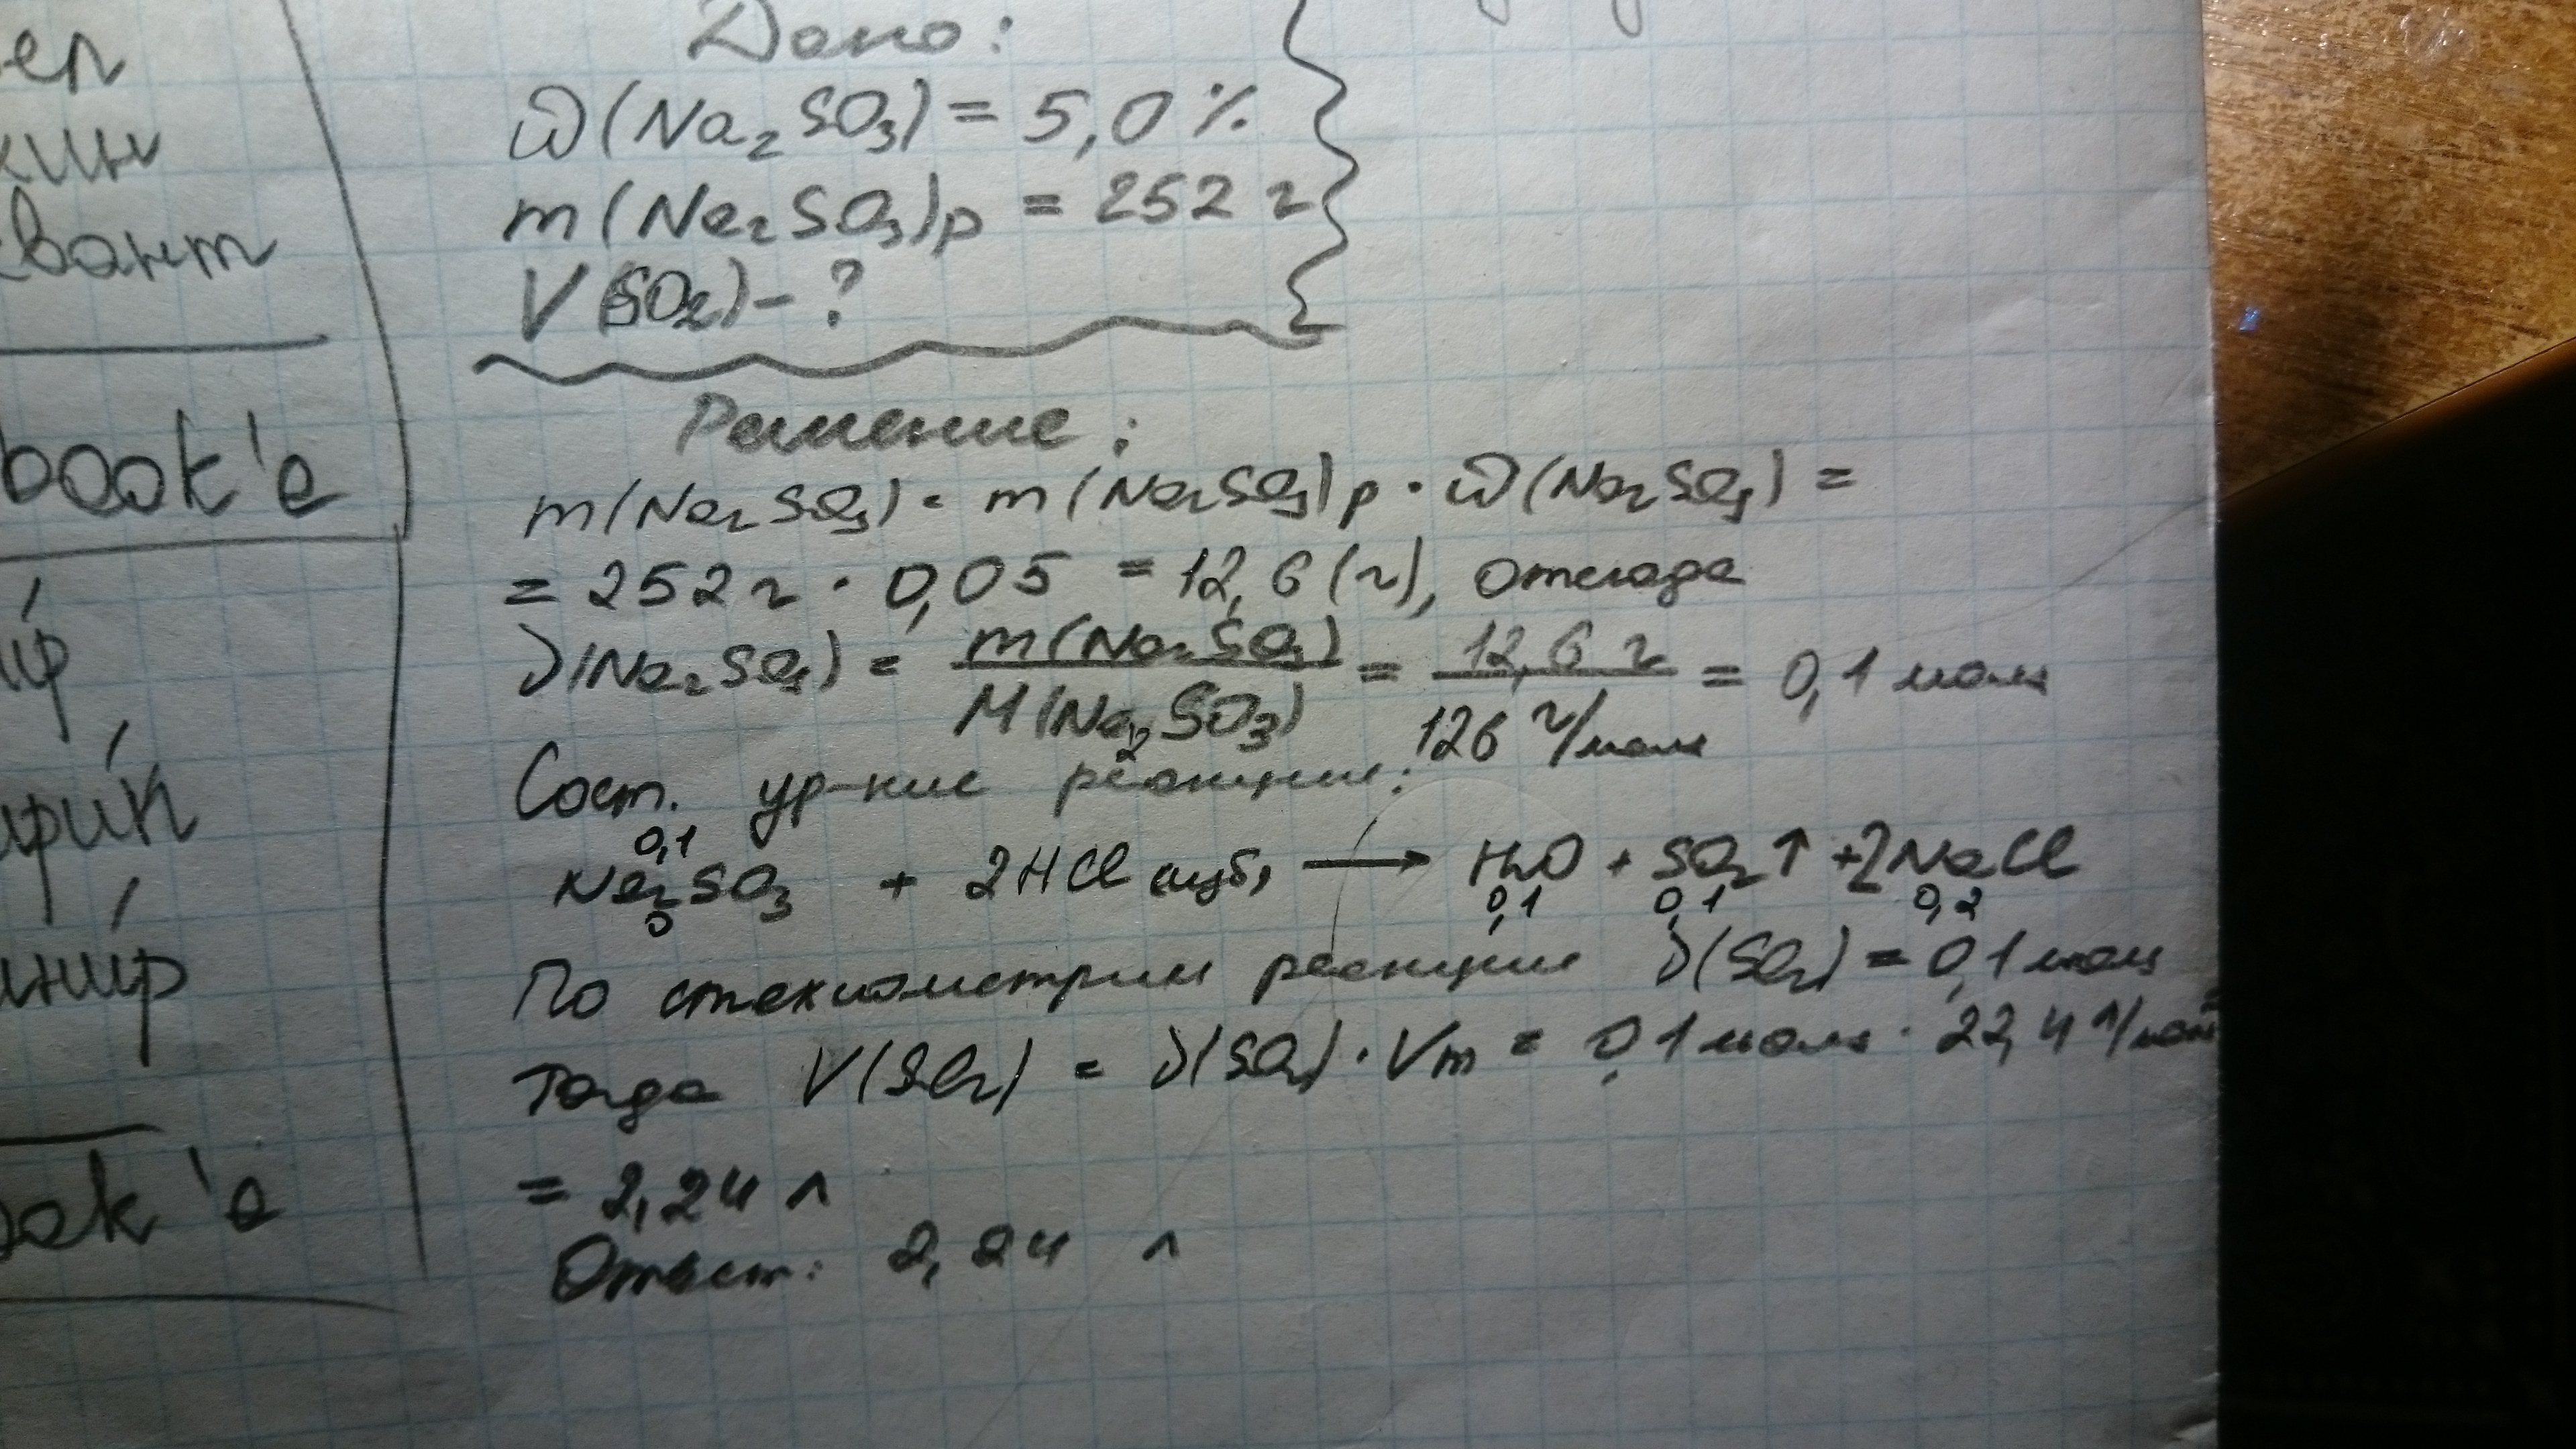 ел
кин
квант
book'e
ір
арій
нір
book'e
Дано:
ω(Na₂SO₃) = 5,0 %
m(Na₂SO₃)р = 252 г
V(SO₂) - ?
Решение:
m(Na₂SO₃) = m(Na₂SO₃)р · ω(Na₂SO₃) =
= 252 г · 0,05 = 12,6 (г), откуда
ν(Na₂SO₃) = m(Na₂SO₃) / M(Na₂SO₃) = 12,6 г / 126 г/моль = 0,1 моль
Сост. ур-ние реакции:
0,1
Na₂SO₃ + 2HCl изб, → H₂O + SO₂↑ + 2NaCl
0 0,1 0,1 0,2
По стехиометрии реакции ν(SO₂) = 0,1 моль
Тогда V(SO₂) = ν(SO₂) · Vm = 0,1 моль · 22,4 л/моль =
= 2,24 л
Ответ: 2,24 л